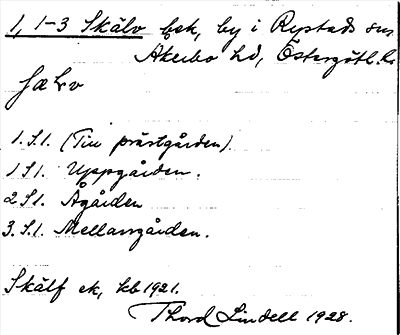 1, 1-3 Skälv bek, by i Rystads sn
Åkerbo hd, Östergötl. l.
1. S.1. (Till prästgården).
1 S1. Uppgården.
2 S1. Ågården
3. S.1. Mellangården.
Skälf ek, kb 1921.
Thord Lindell 1928.